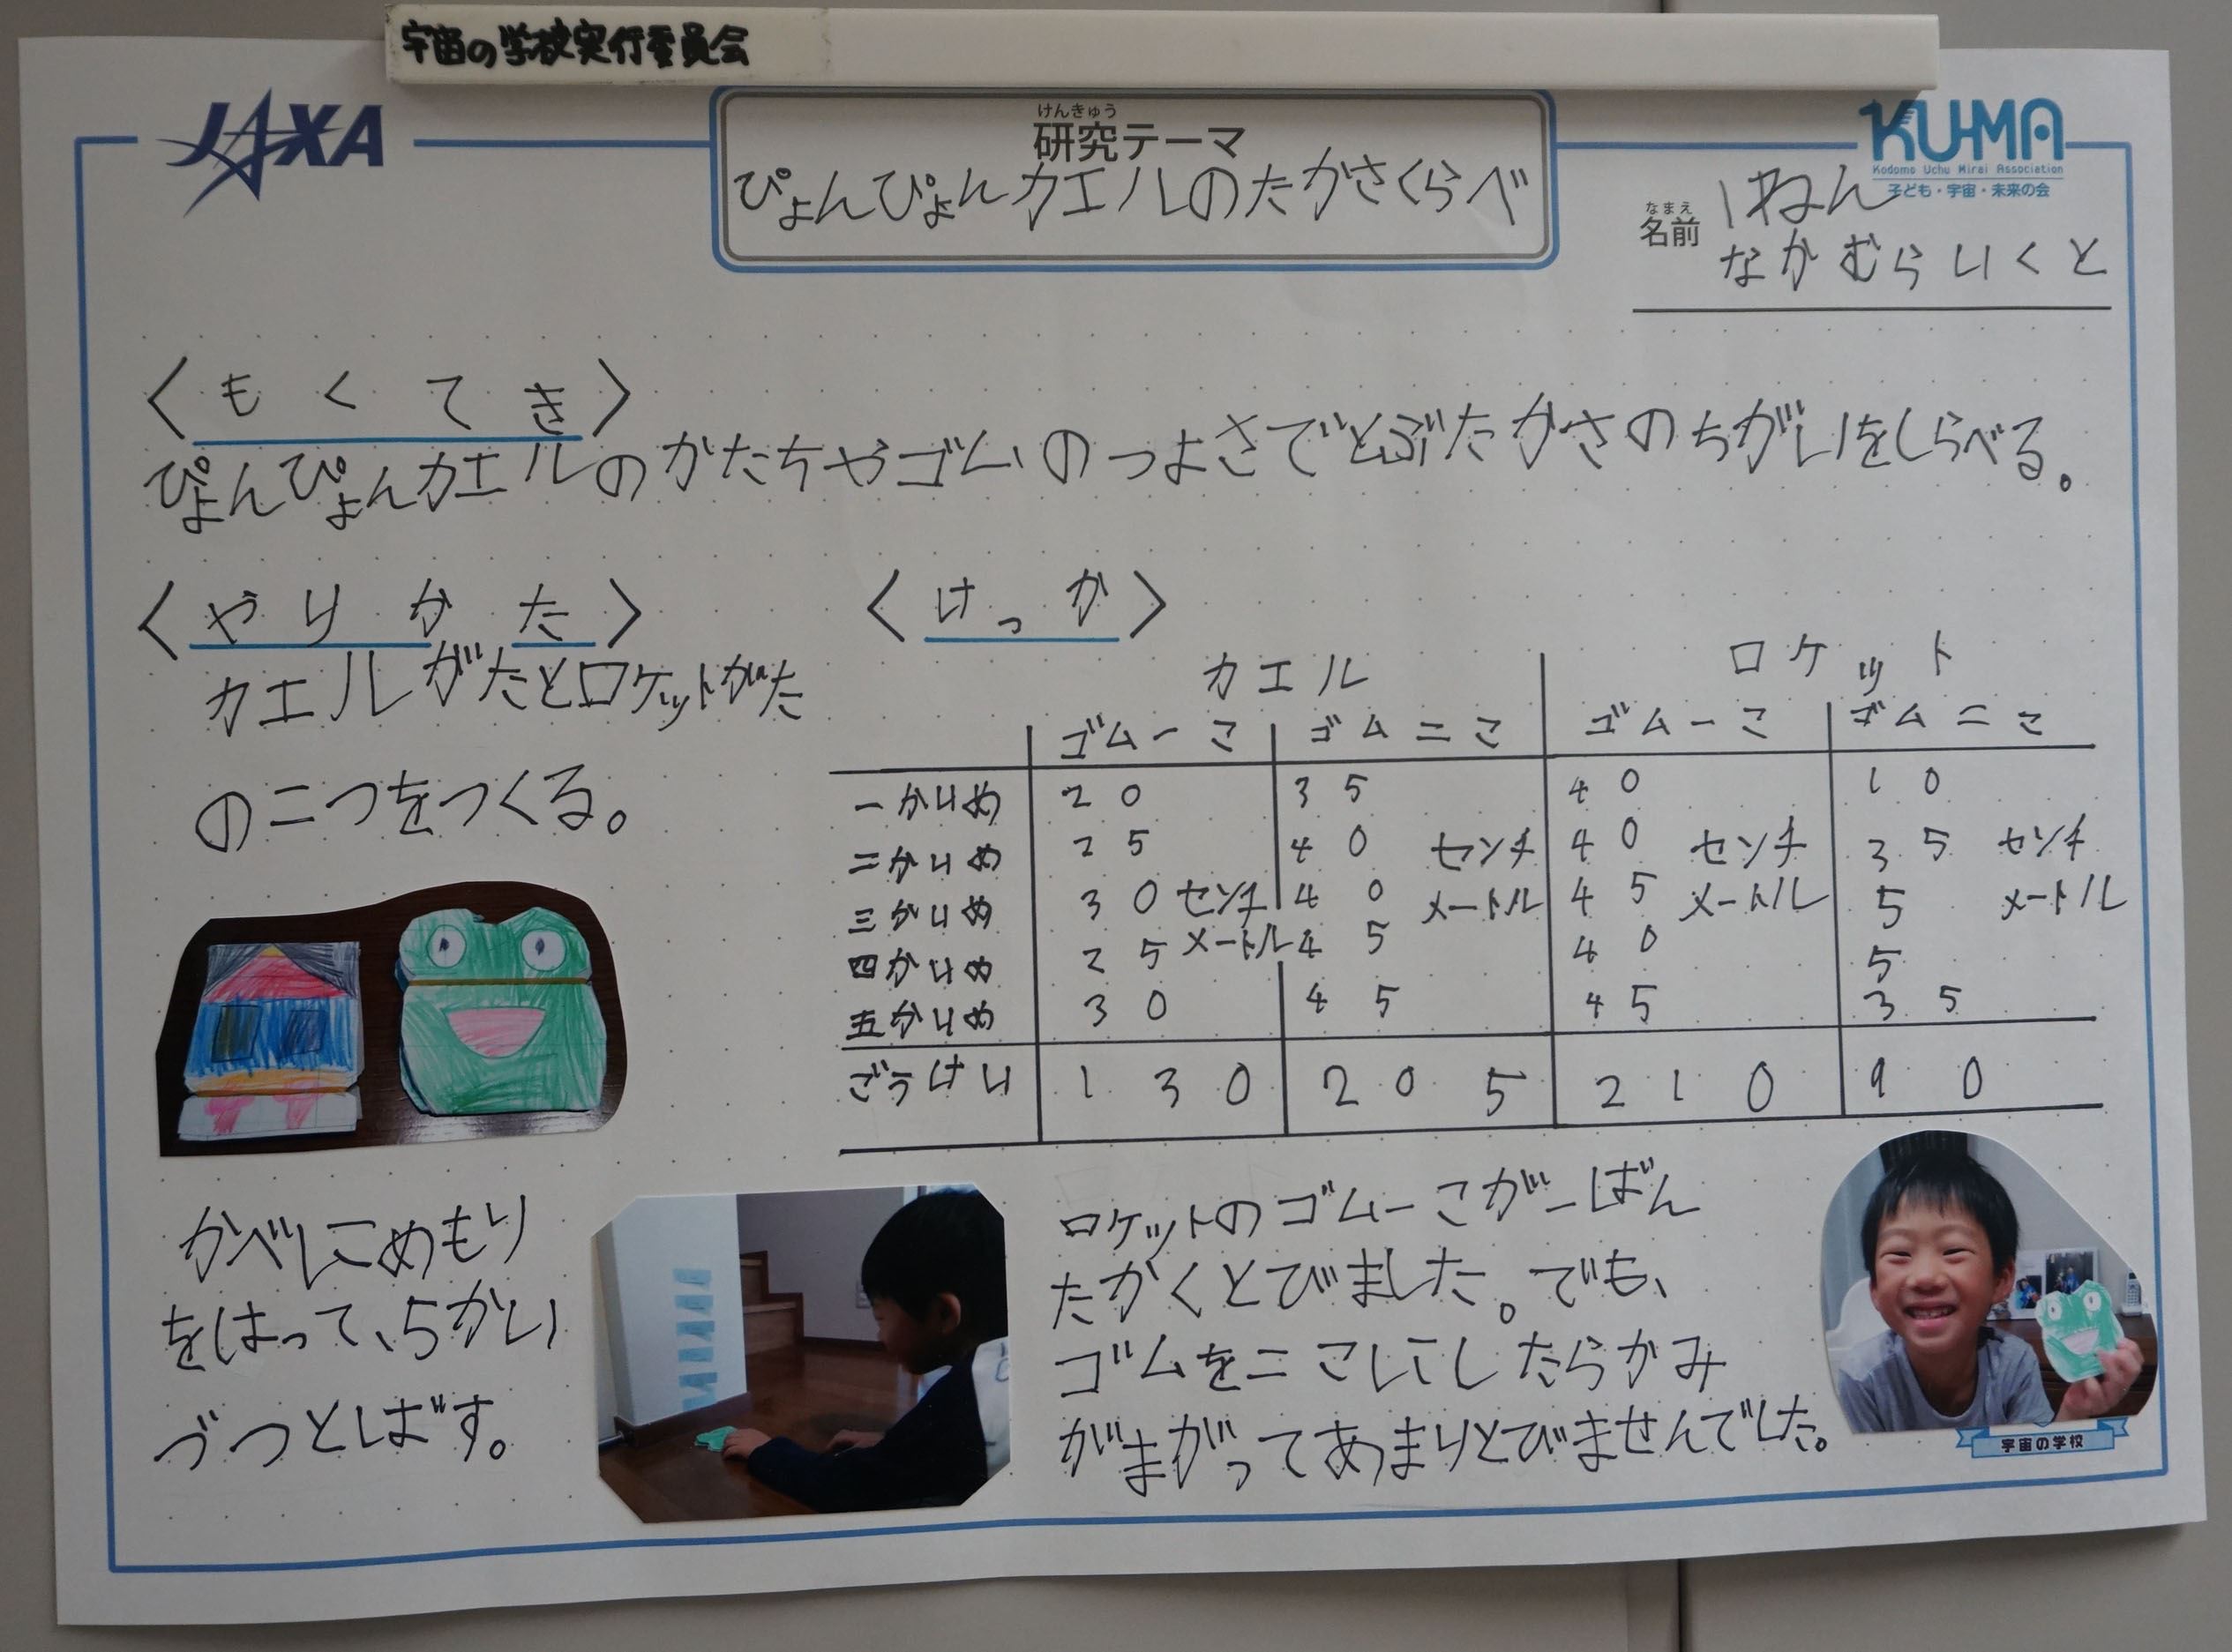 宇宙の学校実行委員会
JAXA
けんきゅう
研究テーマ
ぴょんぴょんカエルのたかさくらべ
KU-MA
Kodomo Uchu Mirai Association
子ども・宇宙・未来の会
なまえ
名前
1ねん
なかむらいくと
〈もくてき〉
ぴょんぴょんカエルのかたちやゴムのつよさでとぶたかさのちがいをしらべる。
〈やりかた〉
カエルがたとロケットがた
の二つをつくる。
〈けっか〉
カエル ロケット
ゴム一こ ゴム二こ ゴム一こ ゴム二こ
一かいめ 20 35 40 10
二かいめ 25 40 センチ 40 センチ 35 センチ
三かいめ 30 センチ 40 メートル 45 メートル 5 メートル
四かいめ 25 メートル 45 40 5
五かいめ 30 45 45 35
ごうけい 130 205 210 90
かべにめもり
をはって、5かい
づつとばす。
ロケットのゴム一こが一ばん
たかくとびました。でも、
ゴムを二こにしたらかみ
がまがってあまりとびませんでした。
宇宙の学校